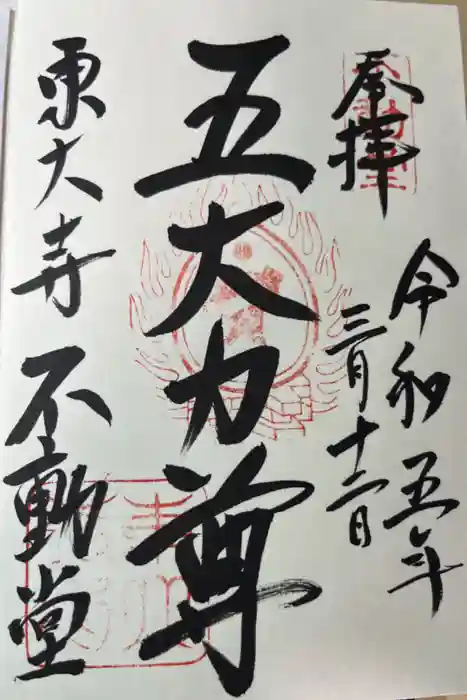 奉拝
令和五年
三月十二日
五大力尊
東大寺 不動堂